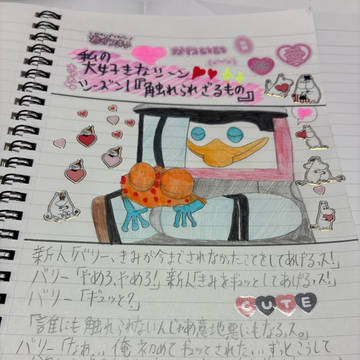 私の
大好きなシーン
シーズン1『触れられざるもの』
新人「バリー、きみが今までされなかったことをしてあげるっス!」
バリー「やめろ、やめろ!」新人「きみをギュッとしてあげるっス!」
バリー「ギュッと?」
CUTE
「誰にも触れられないんじゃあ意地悪にもなるっス。
バリー「なあ、、俺、初めてギュってされた、、ずっとこうして